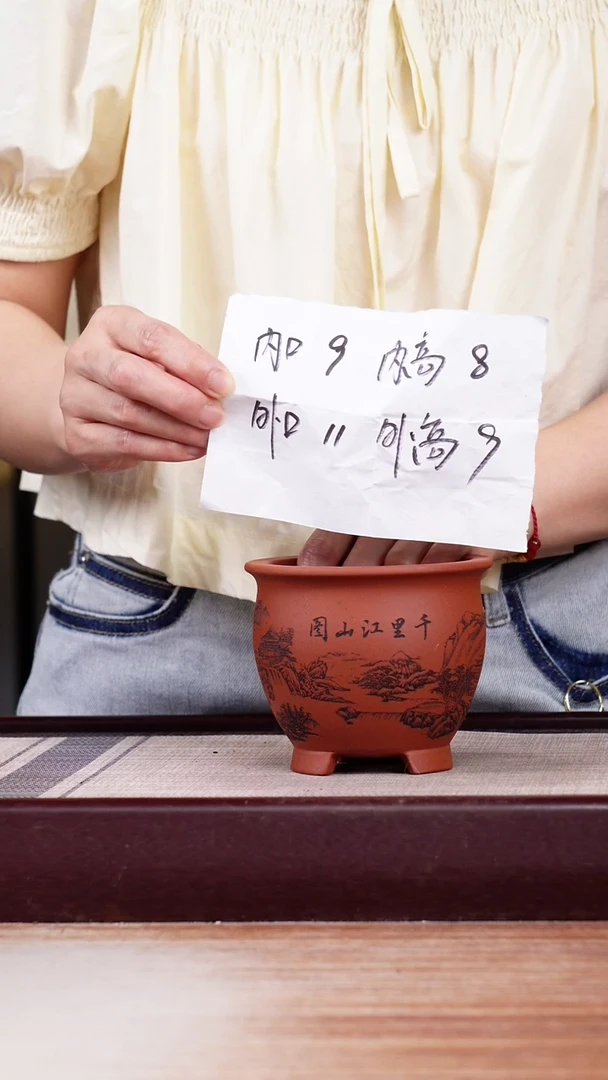 内口 9 内高 8
外口 11 外高 9
千里江山图